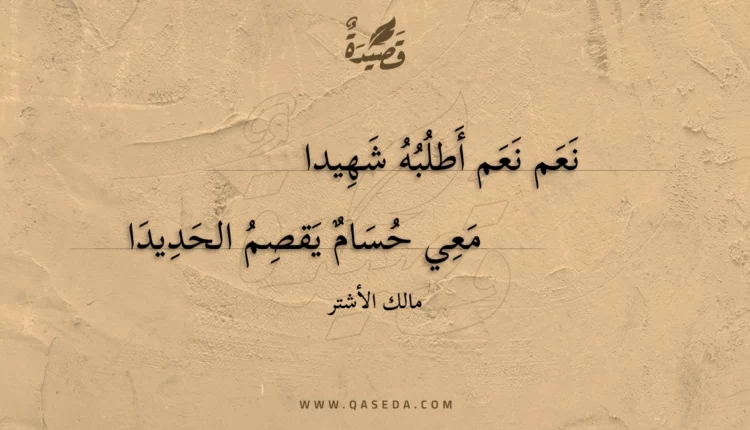 قَصِيدَةٌ
نَعَم نَعَم أَطلُبُهُ شَهِيدا
مَعِي حُسَامٌ يَقصِمُ الحَدِيدَا
مالك الأشتر
WWW.QASEDA.COM